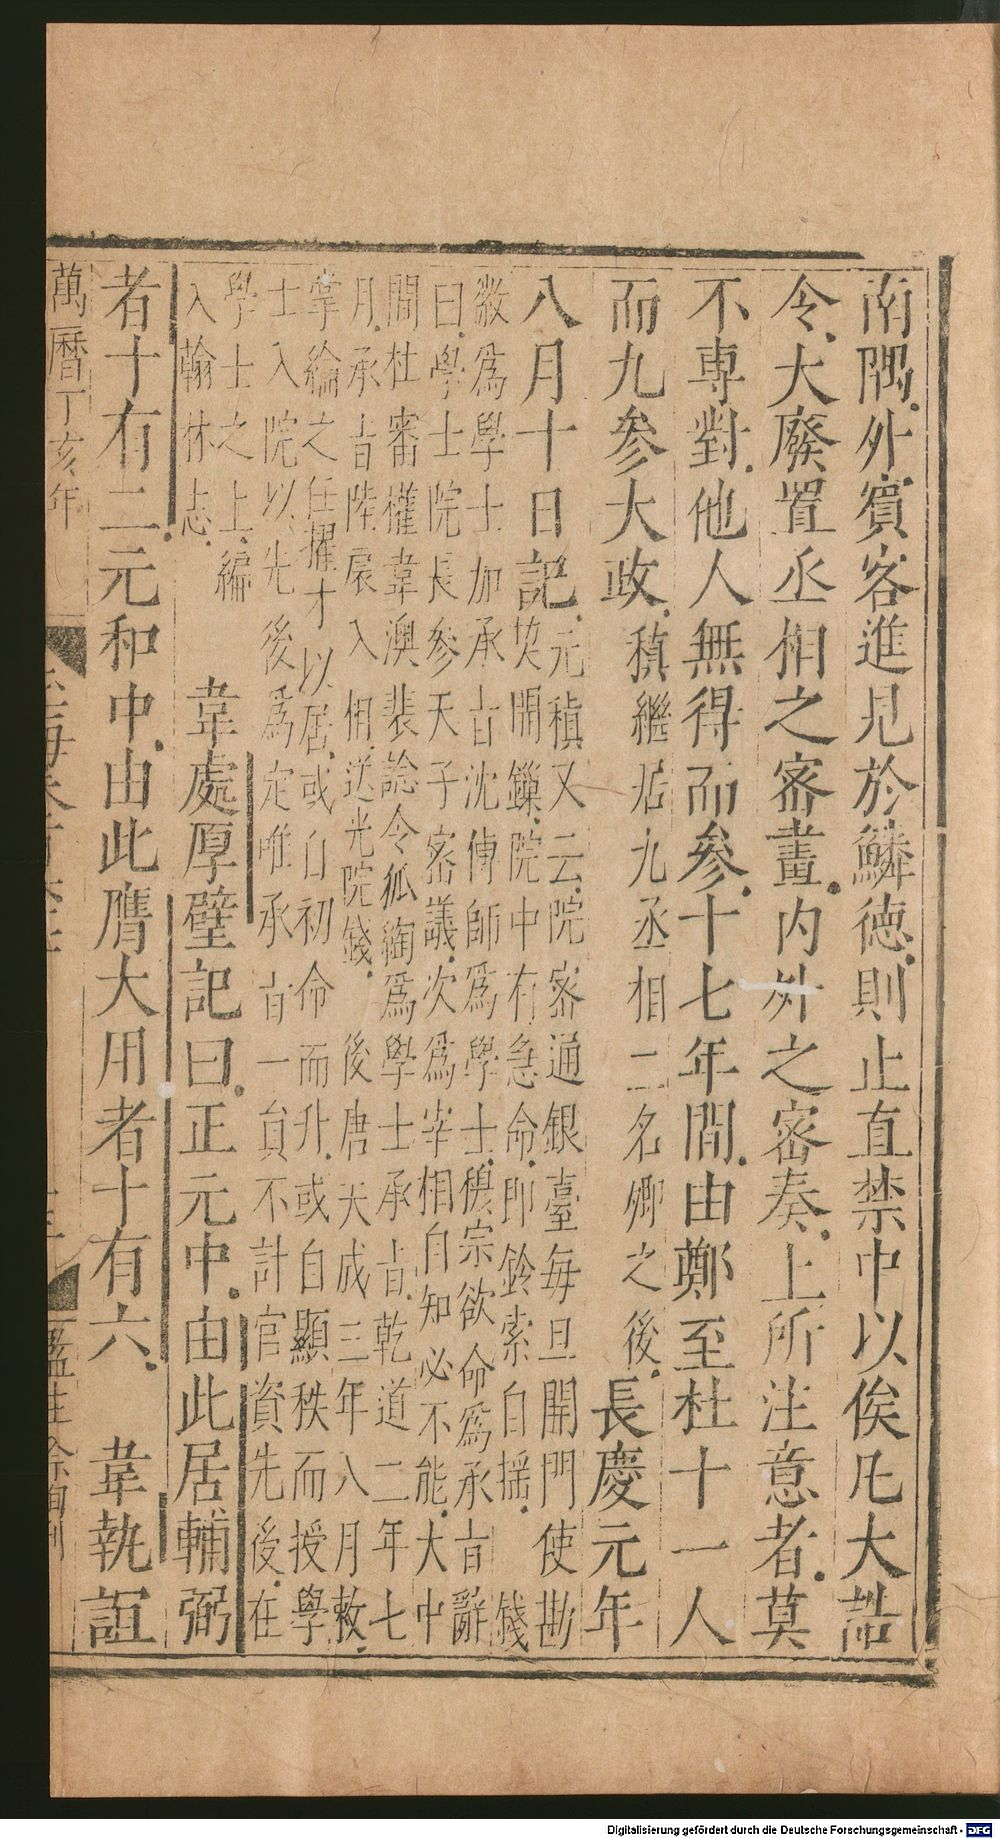 南隅外賓客進見於鱗德則止直禁中以俟凡大誥
令大廢置丞相之密畫内外之密奏上所注意者莫
不専對他人無得而參十七年間由鄭至杜十一人
而九參大政稹繼居九丞相二名卿之後長慶元年
八月十日記元稹又云院密通銀臺毎旦開門使勘
契開鏁院中有急命即鈴索自揺錢
徽爲學士加承旨沈傳師爲學士穆宗欲命爲承旨辭
曰學士院長參天子密議次爲宰相自知必不能大中
間杜審權韋澳裴諗令狐綯爲學士承旨乾道二年七
月承旨陸扆入相送光院錢後唐天成三年八月敕
掌綸之任擢才以居或自初命而升或自顯秩而授學
士入院以先後爲定唯承旨一員不計官資先後在
學士之上編
入翰林志
韋處厚壁記曰正元中由此居輔弼
者十有二元和中由此膺大用者十有六韋執誼
萬曆丁亥年
監生
Digitalisierung gefördert durch die Deutsche Forschungsgemeinschaft - DFG